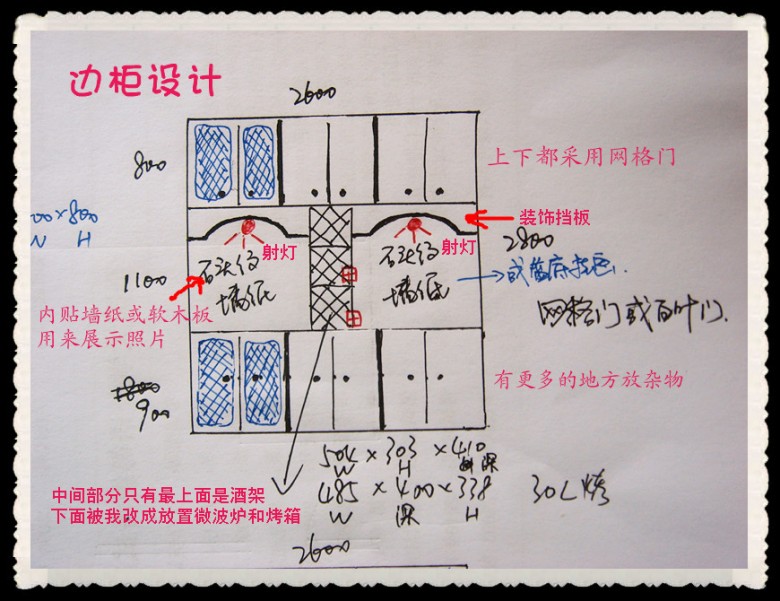 边柜设计
2600
800
上下都采用网格门
00×800
W H
装饰挡板
射灯
射灯
2800
石头纹
墙纸
石头纹
墙纸
1100
内贴墙纸或软木板
用来展示照片
网格门或百叶门.
有更多的地方放杂物
900
504 × 303 × 410
W H 深
485 × 400 × 338
W 深 H
30L烤
中间部分只有最上面是酒架
下面被我改成放置微波炉和烤箱
2600